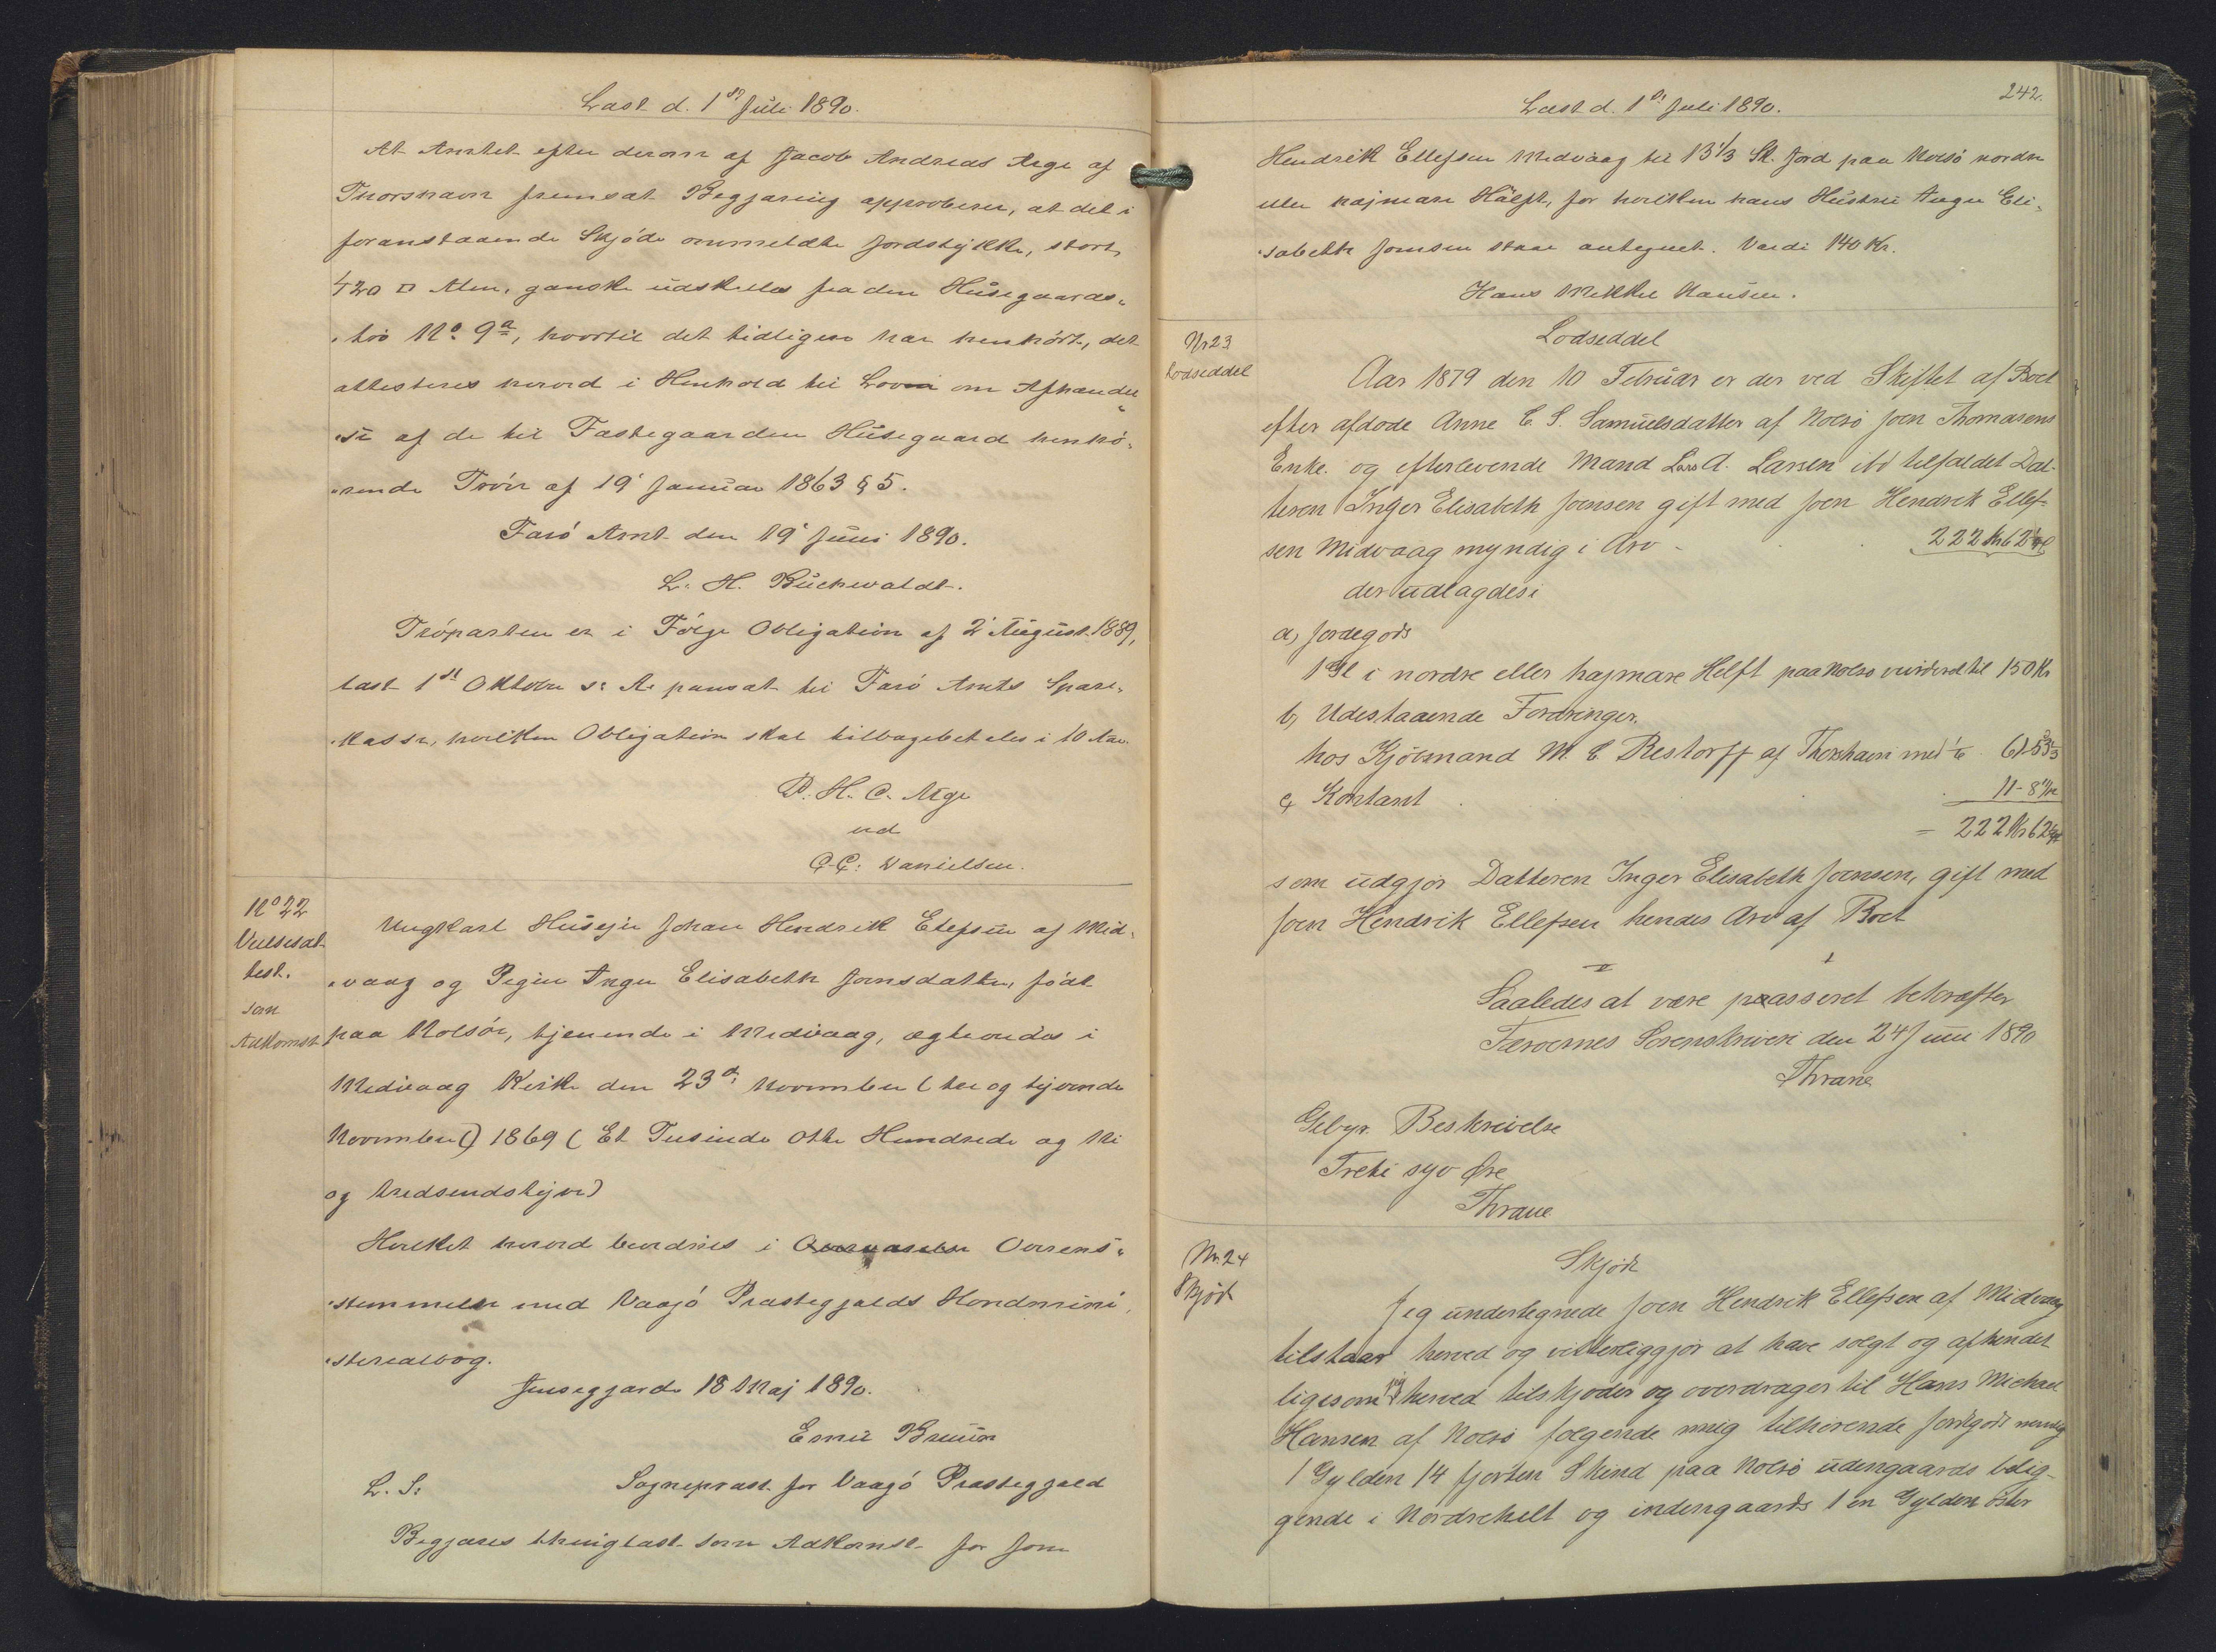 Læst d. 1ste Juli 1890.
At Amtet efter derom af Jacob Andreas Arge af
Thorshavn fremsat Begjæring approberer, at det i
foranstaaende Skjøde ommeldte Jordstykke, stort
420 □ Alen, ganske udskilles fra den Husegaards-
-trø No. 9a, hvortil det tidligere har henhørt, det
attesteres herved i Henhold til Loven om Afhændel-
-se af de til Fæstegaarden Husegaard henhø-
-rende Trøir af 19' Januar 1863 § 5.
Færø Amt den 19' Juni 1890.
L. H. Buchwaldt.
Trøparten er i Følge Obligation af 2' August 1889,
læst 1ste Oktober s. A. pansat til Færø Amts Spare-
-kasse, hvilken Obligation skal tilbagebetales i 10 Aar.
P. H. C. Arge
ved
C. C. Danielsen.
No 22
Vielsesat-
test.
som
Adkomst
Ungkarl Husejer Johan Hendrik Elefsen af Mid-
-vaag og Pigen Inger Elisabeth Joensdatter, født
paa Nolsø, tjenende i Midvaag, ægteviedes i
Midvaag Kirke den 23de November (tre og tyvende
November) 1869 (Et Tusinde Otte Hundrede og Ni
og tredsindstyve)
Hvilket herved bevidnes i Overens-
-stemmelse med Vaagø Præstegjælds Hovedmini-
-sterialbog.
Jensegjærde 18 Maj 1890.
Emil Bruun
L. S. Sognepræst for Vaagø Præstegjæld
Begjæres thinglæst som Adkomst for Joen
242.
Læst d. 1ste Juli 1890.
Hendrik Ellefsen Midvaag til 13 1/3 Sk. Jord paa Nolsø nordre
eller hajmare Hælft, for hvilken hans Hustru Inger Eli-
-sabeth Joensen staar antegnet. Værdi 140 Kr.
Hans Mikkel Hansen.
Nr 23
Lodseddel
Lodseddel
Aar 1879 den 10 Februar er der ved Skiftet af Boet
efter afdøde Anne E. S. Samuelsdatter af Nolsø Joen Thomasens
Enke og efterlevende Mand Lars A. Larsen ibd tilfaldet Dat-
teren Inger Elisabeth Joensen gift med Joen Hendrik Ellef-
sen Midvaag myndig i Arv 222 Kr 62
der udlagdes i
a, Jordegods
1 Gl i nordre eller hajmare Helft paa Nolsø vurderet til 150 Kr
b, Udestaaende Fordringer.
hos Kjøbmand M. C. Restorff af Thorshavn med 1/6 61-53
c, Kontant 11-8
= 222 Kr 62
som udgjør Datteren Inger Elisabeth Joensen, gift med
Joen Hendrik Ellefsen hendes Arv af Boet
Saaledes at være passeret bekræfter
Færøernes Sorenskriveri den 24 Juni 1890
Thrane
Gebyr. Beskrivelse
Treti syv Øre
Thrane
Nr. 24
Skjøde
Skjøde
Jeg undertegnede Joen Hendrik Ellefsen af Midvaag
tilstaar herved og vitterliggjør at have solgt og afhendet
ligesom jeg herved tilskjøder og overdrager til Hans Michael
Hansen af Nolsø følgende mig tilhørende Jordegods nemlig
1 Gylden 14 fjorten Skind paa Nolsø udengaards belig-
gende i Nordrehelt og indengaards 1 en Gylden øster